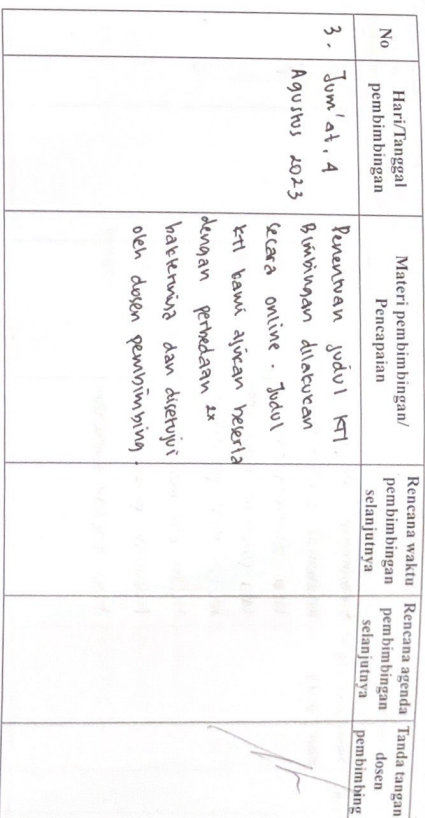 No
Hari/Tanggal
pembimbingan
Materi pembimbingan/
Pencapaian
Rencana waktu
pembimbingan
selanjutnya
Rencana agenda
pembimbingan
selanjutnya
Tanda tangan
dosen
pembimbing
3.
Jum'at, 4
Agustus 2023
Penentuan judul KTI.
Bimbingan dilakukan
secara online. Judul
KTI kami ajukan beserta
dengan perbedaan
bakterinya dan disetujui
oleh dosen pembimbing.